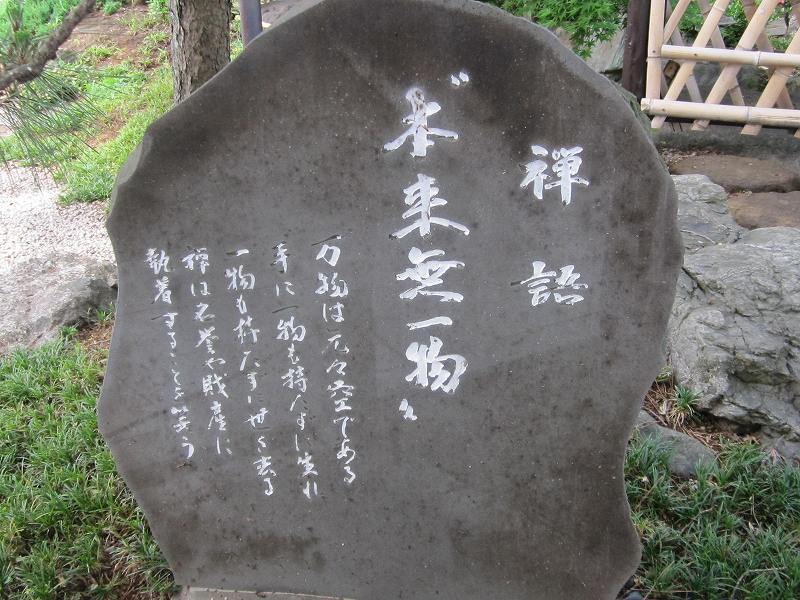 禅語
〝本来無一物〟
万物は元々空である
手に一物も持たずに生れ
一物も持たずに世を去る
禅は名誉や財産に
執着することを笑う